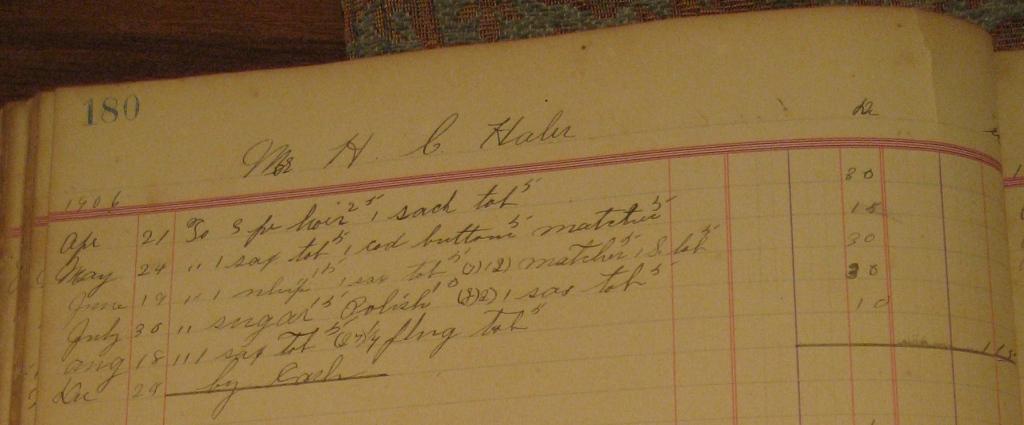 180
Dr
Mr H. C. Haler
1906
Apr 21 To 3 pr hoir 25 1 sack tob 5 30
May 24 " 1 sax tob 5 1 cod buttons 5 matches 5 15
June 19 " 1 whip 15 1 sax tob 5 matches 5 1 S tob 5 30
July 30 " sugar 15 Polish 10 1 sax tob 5 30
Aug 18 " 1 sax tob 5 flng tob 5 10
Dec 29 by Cash